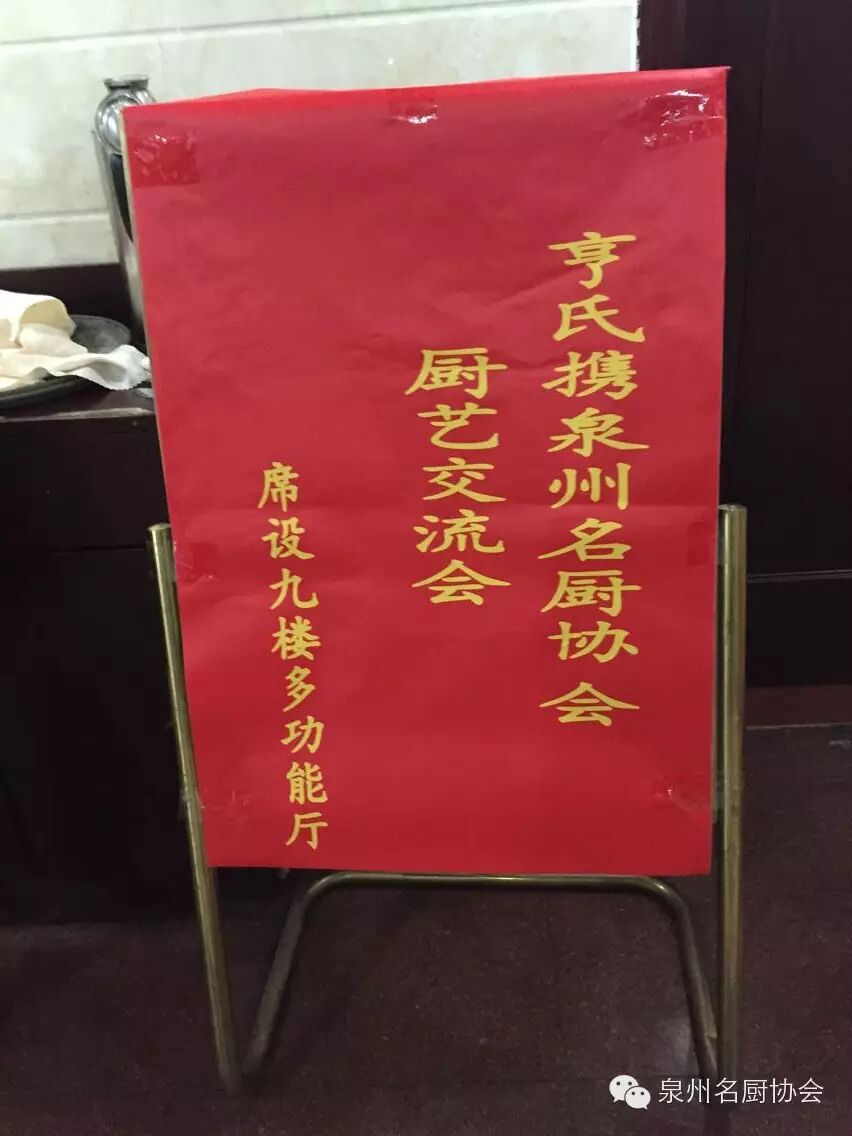 亨氏携泉州名厨协会
厨艺交流会
席设九楼多功能厅
泉州名厨协会